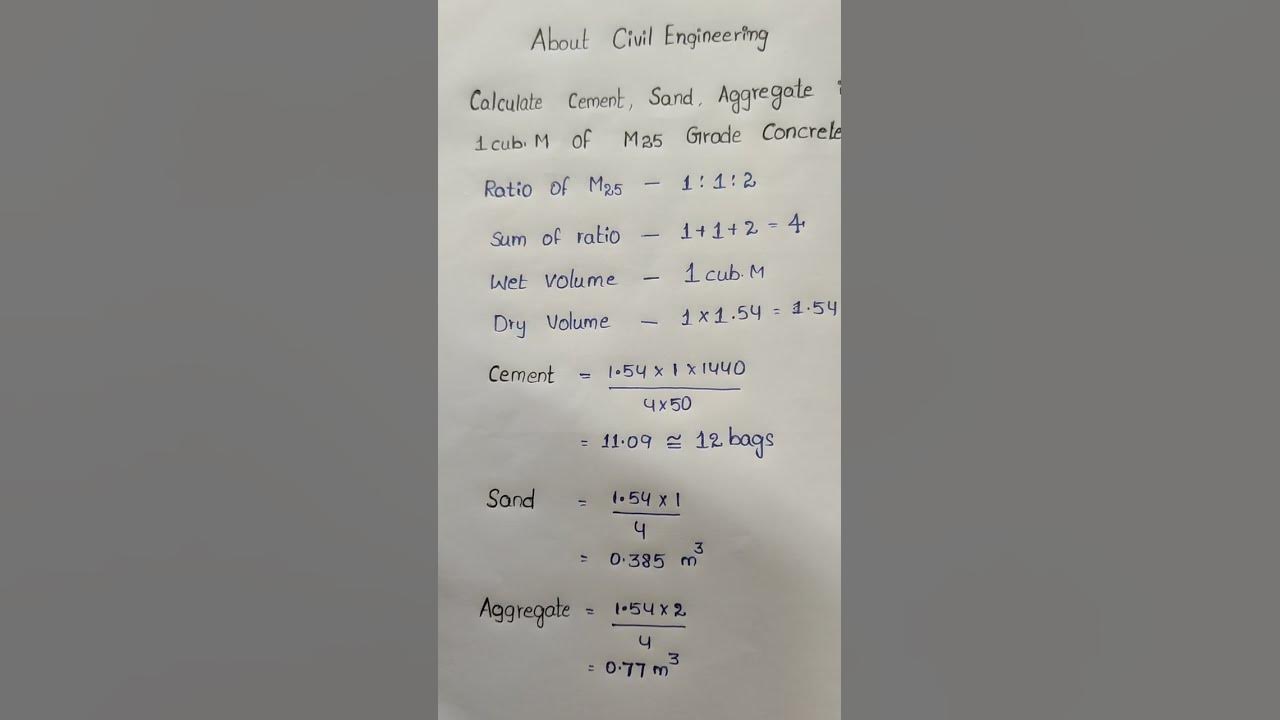 About Civil Engineering
Calculate Cement, Sand, Aggregate
1 cub. M of M25 Grade Concrete
Ratio of M25 — 1 : 1 : 2
Sum of ratio — 1 + 1 + 2 = 4
Wet Volume — 1 cub. M
Dry Volume — 1 x 1.54 = 1.54
Cement = 1.54 x 1 x 1440
4 x 50
= 11.09 ≅ 12 bags
Sand = 1.54 x 1
4
= 0.385 m³
Aggregate = 1.54 x 2
4
= 0.77 m³